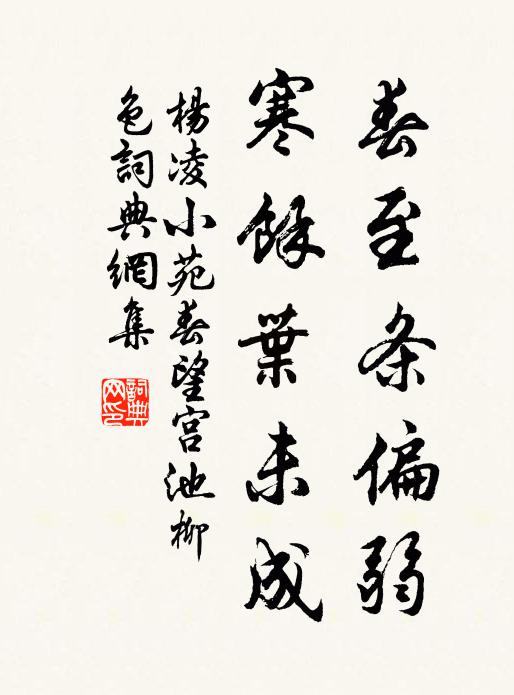 春至条偏弱
寒餘葉未成
楊凌小苑春望宫池柳
色詞典網集
詞典
网印